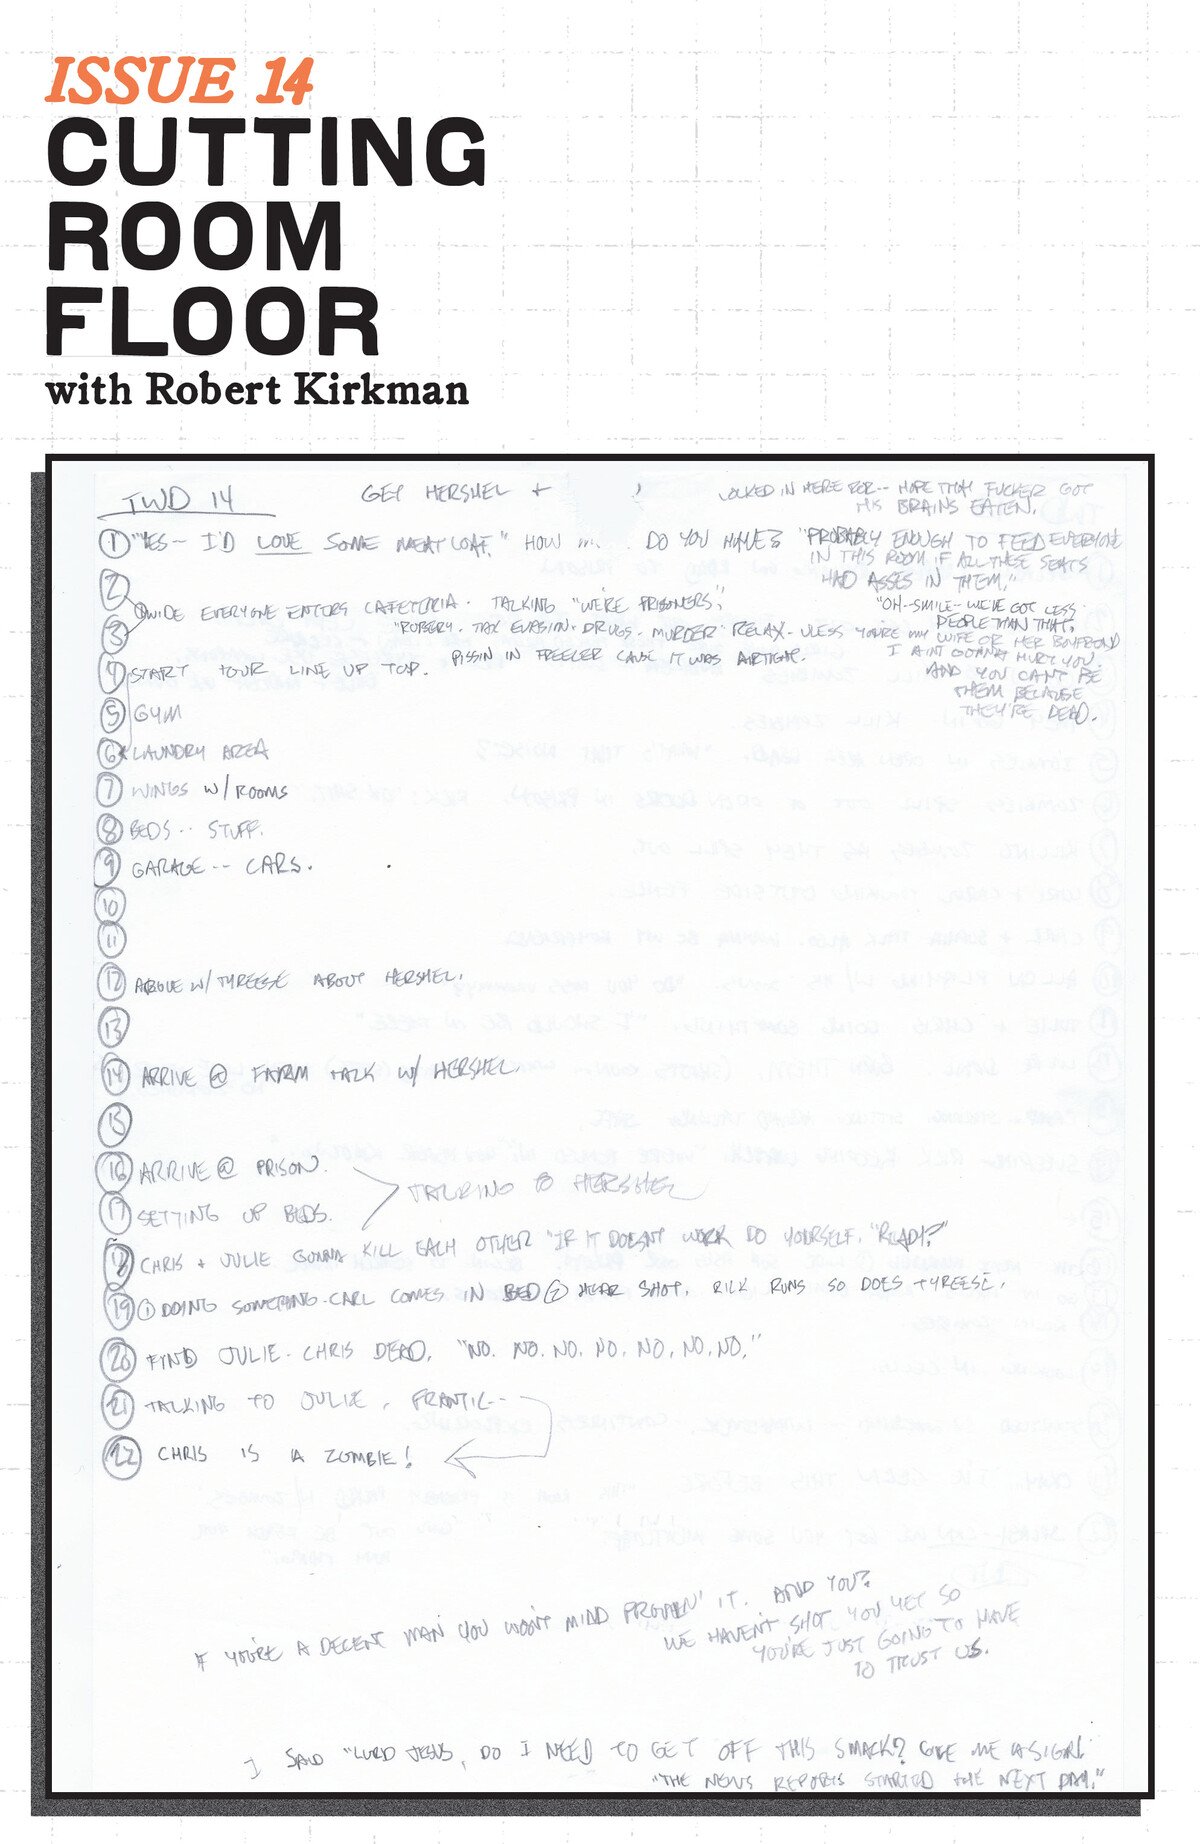 ISSUE 14
CUTTING
ROOM
FLOOR
with Robert Kirkman
TWD 14
GET HERSHEL +
LOCKED IN HERE FOR-- HOPE THAT FUCKER GOT
HIS BRAINS EATEN.
1 "YES-- I'D LOVE SOME MEATLOAF." HOW DO YOU HAVE?
"PROBABLY ENOUGH TO FEED EVERYONE
IN THIS ROOM IF ALL THESE SEATS
HAD ASSES IN THEM."
2
1 WIDE EVERYONE ENTERS CAFETERIA. TALKING "WE'RE PRISONERS."
"OH--SMILE--WE'VE GOT LESS
PEOPLE THAN THAT."
3 "ROBERY. TAX EVASION. DRUGS. MURDER" RELAX-ULESS YOU'RE MY WIFE OR HER BOYFREND
I AINT GONNA HURT YOU.
AND YOU CAN'T BE
THEM BECAUSE
THEY'RE DEAD.
4 START TOUR LINE UP TOP. PISSIN IN FREEZER CAUSE IT WAS AIRTIGHT.
5 GYM
6 LAUNDRY AREA
7 WINGS W/ROOMS
8 BEDS-- STUFF.
9 GARAGE-- CARS.
10
11
12 ARGUE W/TYREESE ABOUT HERSHEL.
13
14 ARRIVE @ FARM TALK W/ HERSHEL.
15
16 ARRIVE @ PRISON.
TALKING TO HERSHEL
17 SETTING UP BEDS.
18 CHRIS + JULIE GONNA KILL EACH OTHER "IF IT DOESNT WORK DO YOURSELF. "READY?"
19 1 DOING SOMETHING-CARL COMES IN BED 2 HEAR SHOT. RICK RUNS SO DOES TYREESE.
20 FIND JULIE-CHRIS DEAD. "NO. NO. NO. NO. NO. NO. NO."
21 TALKING TO JULIE, FRANTIC--
22 CHRIS IS A ZOMBIE!
IF YOU'RE A DECENT MAN YOU WON'T MIND PROVEN' IT. AND YOU?
WE HAVEN'T SHOT YOU YET SO
YOU'RE JUST GOING TO HAVE
TO TRUST US.
I SAID "LORD JESUS, DO I NEED TO GET OFF THIS SMACK? GIVE ME A SIGN.
"THE NEWS REPORTS STARTED THE NEXT DAY."